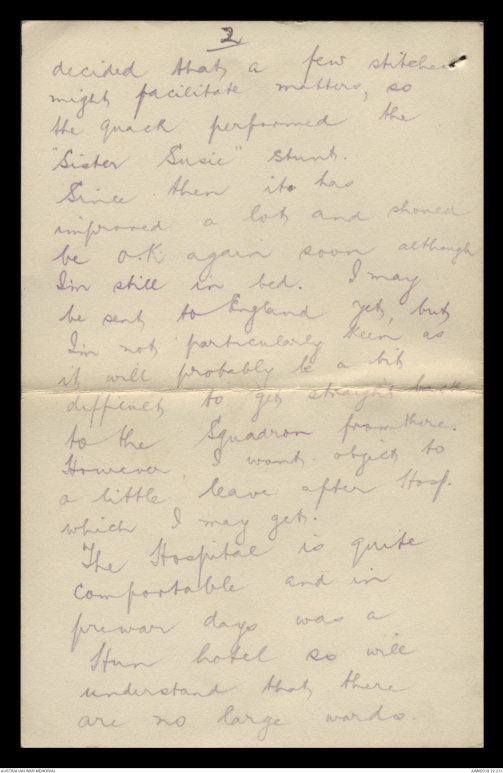 2
decided that a few stitches
might facilitate matters, so
the quack performed the
"Sister Susie" stunt.
Since then it has
improved a lot and should
be O.K again soon although
I'm still in bed. I may
be sent to England yet, but
I'm not particularly keen as
it will probably be a bit
difficult to get straight back
to the Squadron from there.
However I wont object to
a little leave after Hosp.
which I may get.
The Hospital is quite
comfortable and in
prewar days was a
Hun hotel so will
understand that there
are no large wards.
AUSTRALIAN WAR MEMORIAL